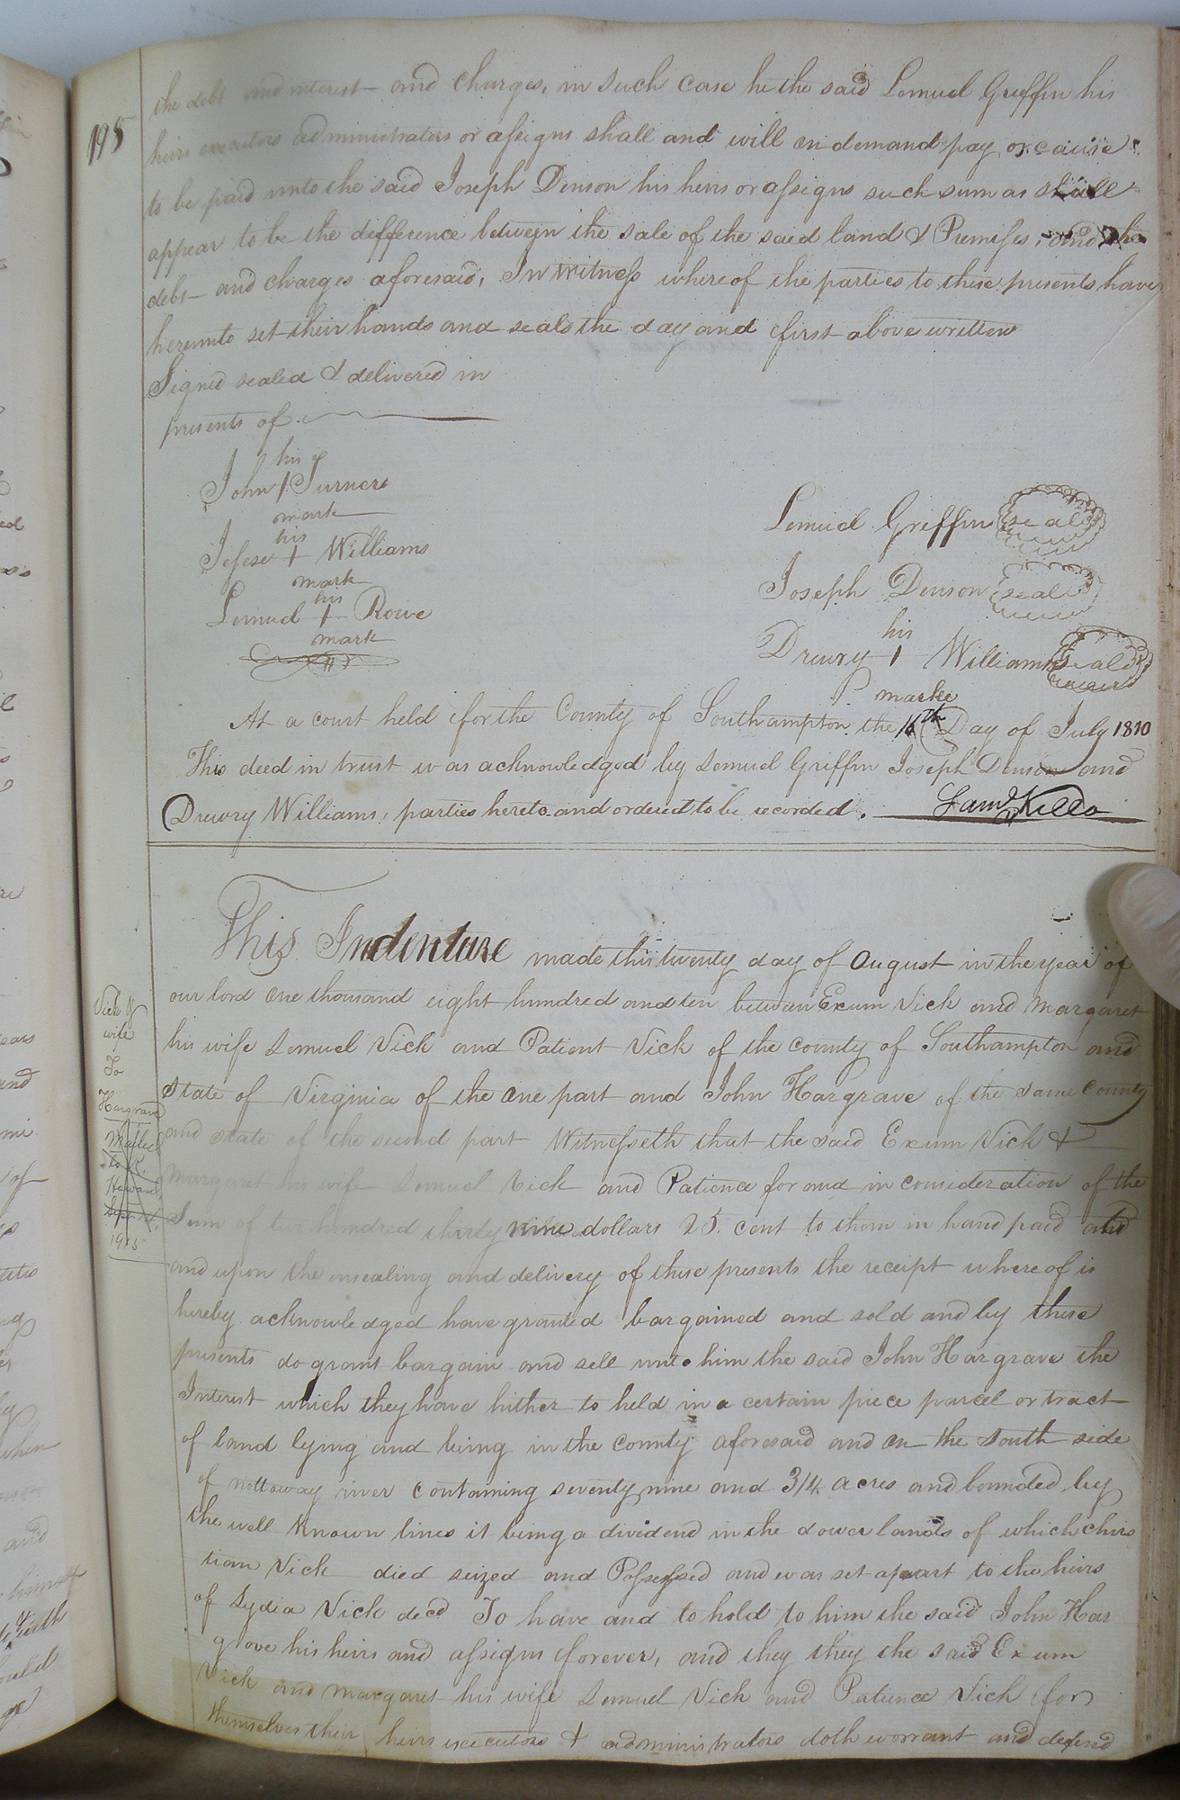 198
the debt and interest and charges, in such case he the said Lemuel Griffin his
heirs executors administrators or assigns shall and will on demand pay, or cause
to be paid unto the said Joseph Denson his heirs or assigns such sum as shall
appear to be the difference between the sale of the said land & Premises, and the
debt and charges aforesaid, In witness whereof the parties to these presents have
hereunto set their hands and seals the day and first above written
Signed sealed & delivered in
presents of
his
John Turner
mark
his
Jesse + Williams
mark
his
Lemuel + Rowe
mark
Lemuel Griffin seal
Joseph Denson seal
his
Drewry Williams seal
marke
At a court held for the County of Southampton the 16th Day of July 1810
This deed in trust was acknowledged by Lemuel Griffin Joseph Denson and
Drewry Williams, parties hereto and ordered to be recorded. Saml Kello
Vick &
wife
To
Hargrave
Mailed
to
Howard
1955
This Indenture made this twenty day of August in the year of
our lord one thousand eight hundred and ten between Exum Vick and Margaret
his wife Lemuel Vick and Patient Vick of the County of Southampton and
State of Virginia of the one part and John Hargrave of the same County
and state of the second part Witnesseth that the said Exum Vick &
Margaret his wife Lemuel Vick and Patience for and in consideration of the
Sum of two hundred thirty nine dollars 25 cent to them in hand paid and
and upon the ensealing and delivery of these presents the receipt whereof is
hereby acknowledged have granted bargained and sold and by these
presents do grant bargain and sell unto him the said John Hargrave the
Interest which they have hither to held in a certain piece parcel or tract
of land lying and being in the County aforesaid and on the South side
of nottoway river Containing seventy nine and 3/4 acres and bounded by
the well known lines it being a dividend in the dower lands of which Chris
tian Vick died seized and Possessed and was set apart to the heirs
of Lydia Vick decd To have and to hold to him the said John Har
grove his heirs and assigns forever, and they they the said Exum
Vick and Margaret his wife Lemuel Vick and Patience Vick for
themselves their heirs executors & administrators doth warrant and defend